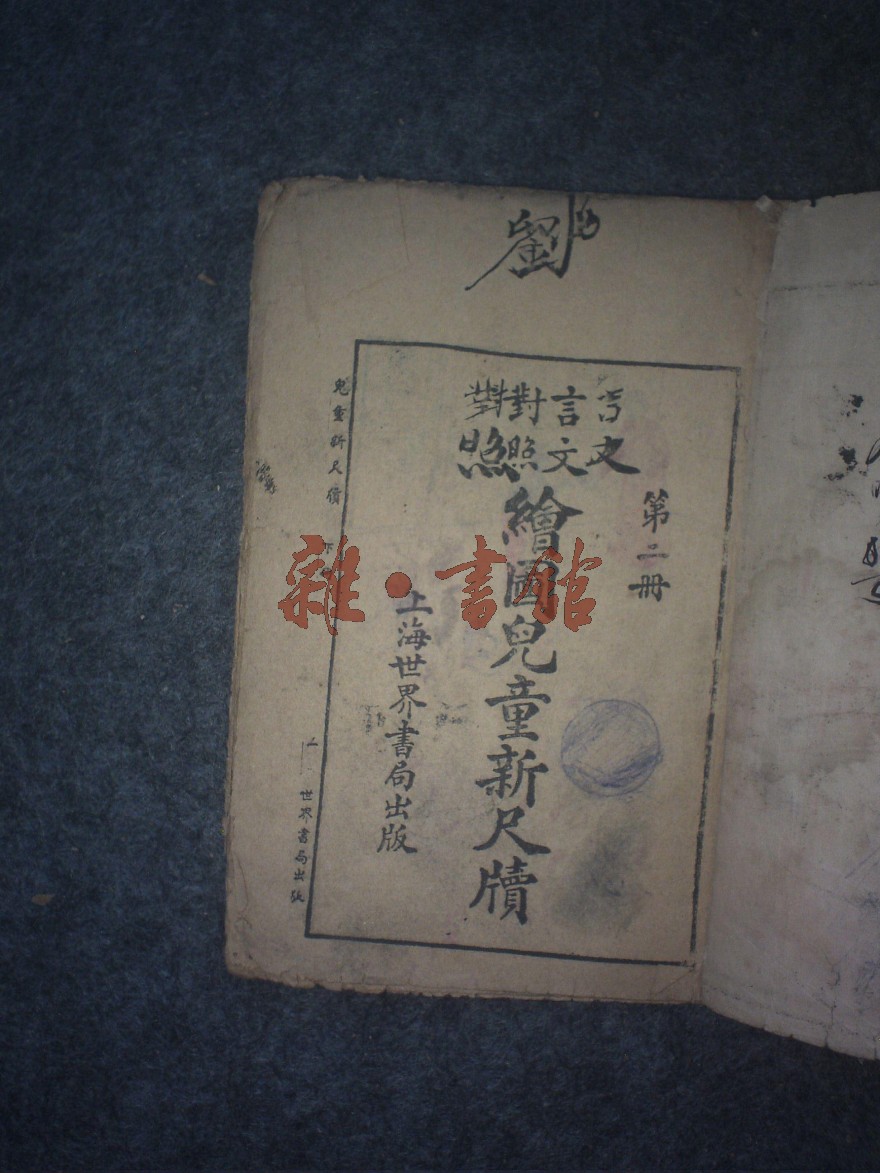 劉
第二冊
言文對照
言文對照
繪圖兒童新尺牘
上海世界書局出版
兒童新尺牘
下
一
世界書局出版
雜·書館